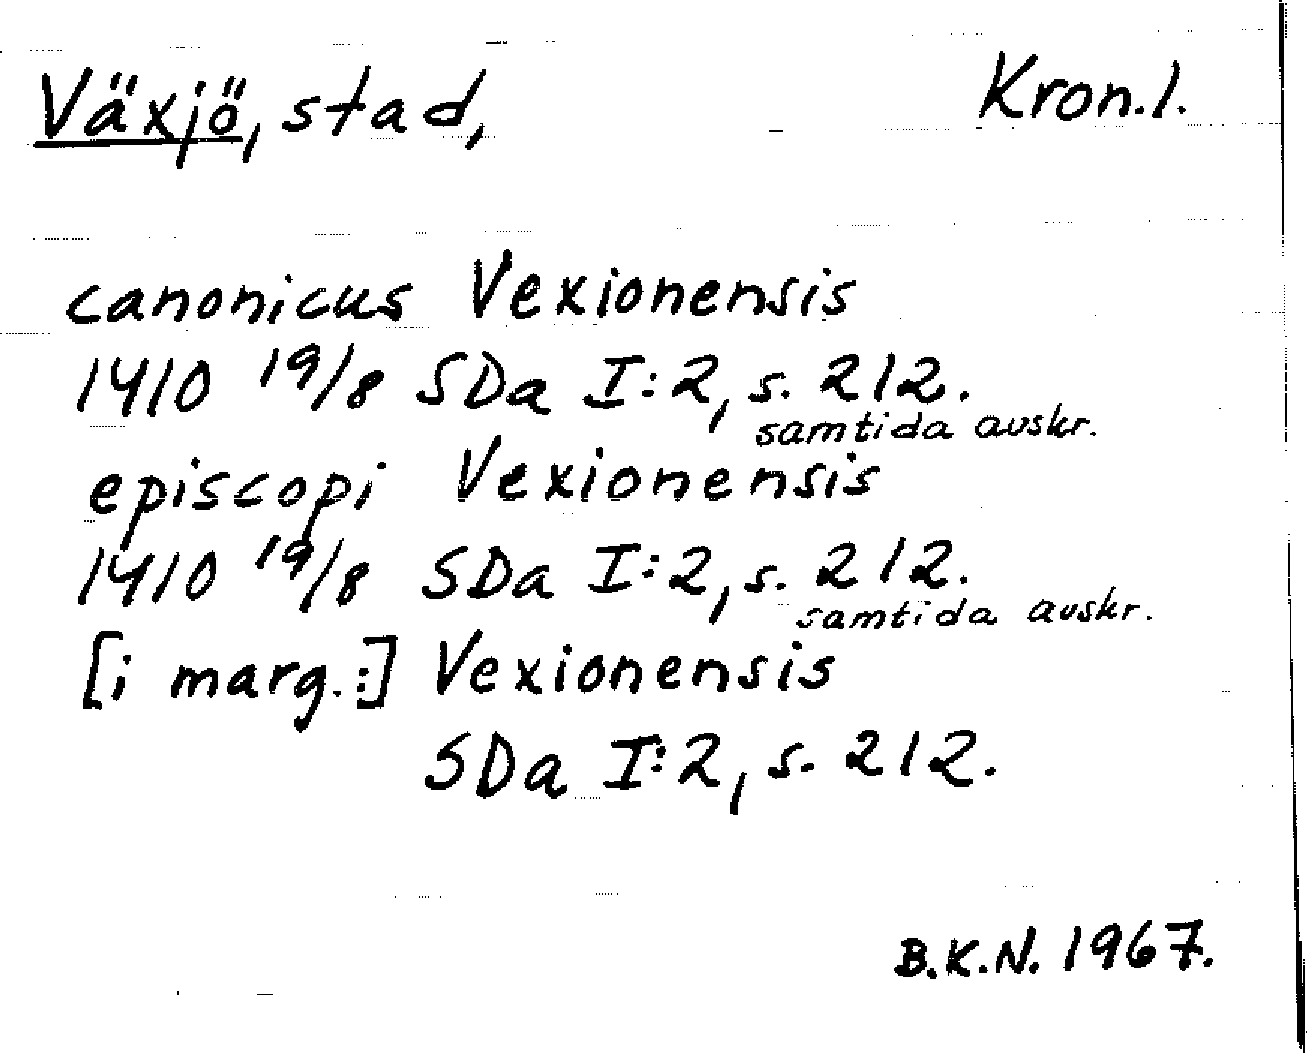 Växjö, stad, Kron.l.
canonicus Vexionensis
1410 19/8 SDa I:2, s. 212.
samtida avskr.
episcopi Vexionensis
1410 19/8 SDa I:2, s. 212.
samtida avskr.
[i marg.:] Vexionensis
SDa I:2, s. 212.
B.K.N. 1967.